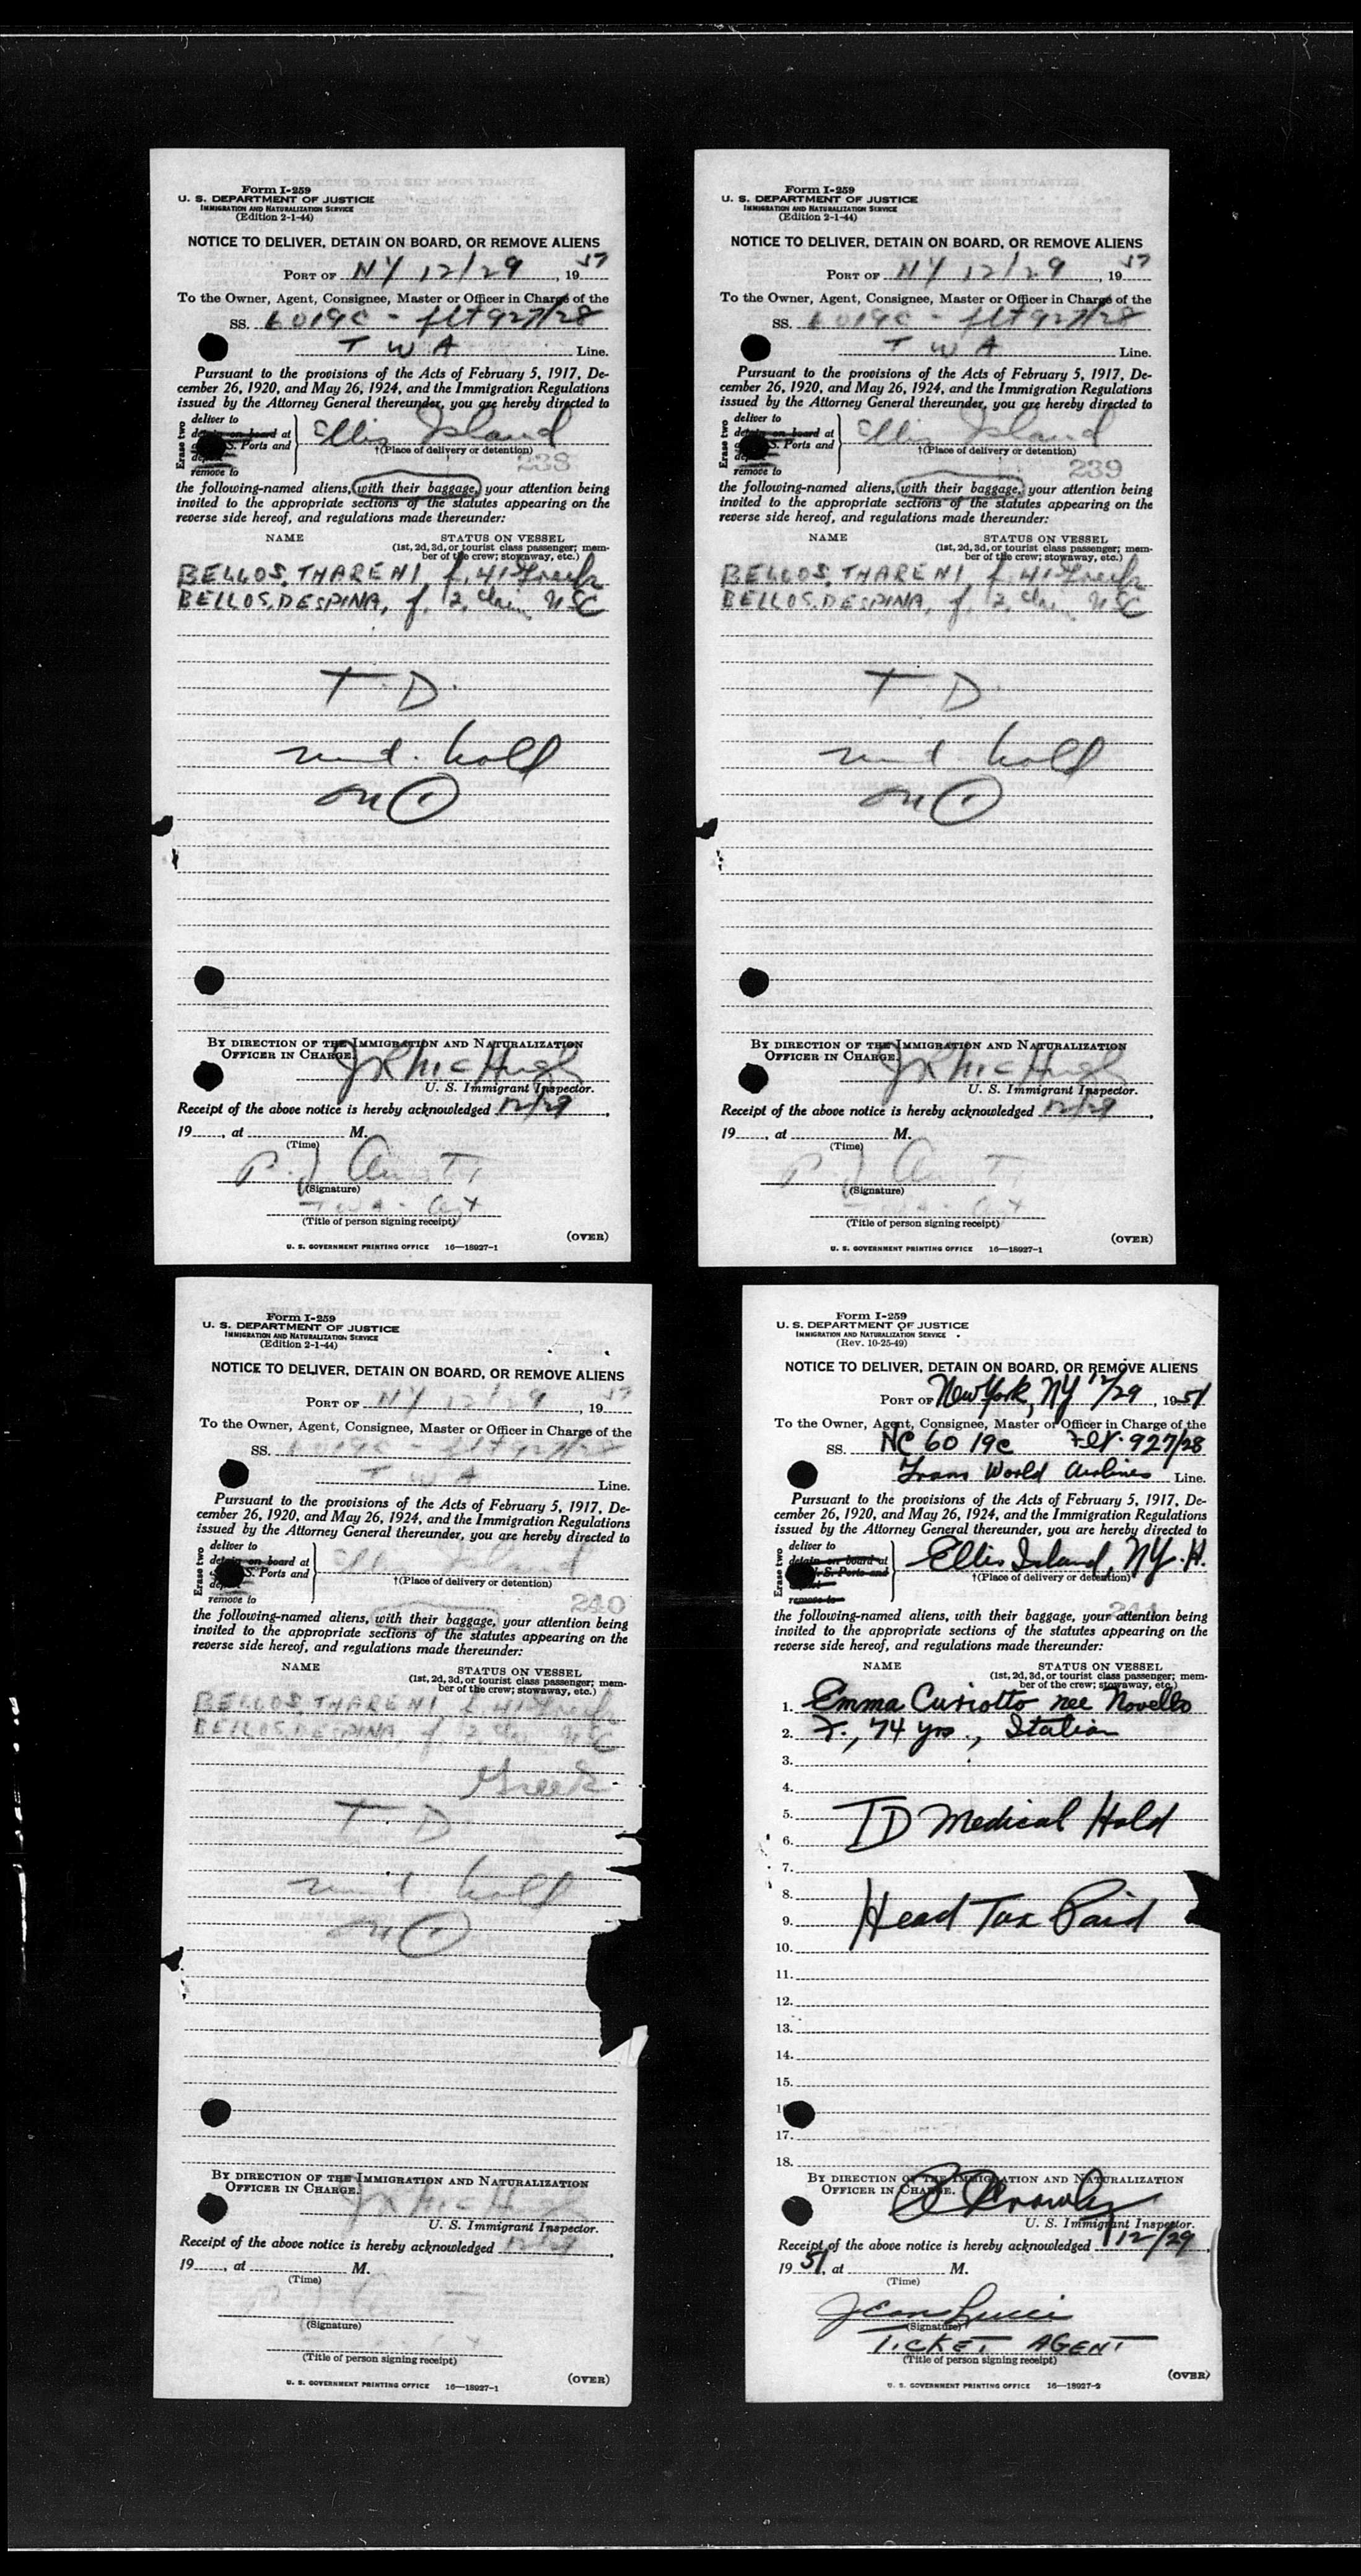 Form I-259
U. S. DEPARTMENT OF JUSTICE
IMMIGRATION AND NATURALIZATION SERVICE
(Edition 2-1-44)
NOTICE TO DELIVER, DETAIN ON BOARD, OR REMOVE ALIENS
PORT OF NY 12/29, 1951
To the Owner, Agent, Consignee, Master or Officer in Charge of the
SS. 6019C - flt 927/28
T W A Line.
Pursuant to the provisions of the Acts of February 5, 1917, De-
cember 26, 1920, and May 26, 1924, and the Immigration Regulations
issued by the Attorney General thereunder, you are hereby directed to
Erase two
deliver to
detain on board at
S. Ports and
remove to
Ellis Island
†(Place of delivery or detention)
238
the following-named aliens, with their baggage, your attention being
invited to the appropriate sections of the statutes appearing on the
reverse side hereof, and regulations made thereunder:
NAME STATUS ON VESSEL
(1st, 2d, 3d, or tourist class passenger; mem-
ber of the crew; stowaway, etc.)
BELLOS, THARENI, f. 41 Greek
BELLOS, DESPINA, f. 2, claim USC
T. D.
med. hold
on ①
BY DIRECTION OF THE IMMIGRATION AND NATURALIZATION
OFFICER IN CHARGE.
JR McHugh
U. S. Immigrant Inspector.
Receipt of the above notice is hereby acknowledged 12/29,
19____, at ____ M.
(Time)
P. J.
(Signature)
TWA - Agt
(Title of person signing receipt)
(OVER)
U. S. GOVERNMENT PRINTING OFFICE 16—18927-1
Form I-259
U. S. DEPARTMENT OF JUSTICE
IMMIGRATION AND NATURALIZATION SERVICE
(Edition 2-1-44)
NOTICE TO DELIVER, DETAIN ON BOARD, OR REMOVE ALIENS
PORT OF NY 12/29, 1951
To the Owner, Agent, Consignee, Master or Officer in Charge of the
SS. 6019C - flt 927/28
T W A Line.
Pursuant to the provisions of the Acts of February 5, 1917, De-
cember 26, 1920, and May 26, 1924, and the Immigration Regulations
issued by the Attorney General thereunder, you are hereby directed to
Erase two
deliver to
detain on board at
S. Ports and
remove to
Ellis Island
†(Place of delivery or detention)
239
the following-named aliens, with their baggage, your attention being
invited to the appropriate sections of the statutes appearing on the
reverse side hereof, and regulations made thereunder:
NAME STATUS ON VESSEL
(1st, 2d, 3d, or tourist class passenger; mem-
ber of the crew; stowaway, etc.)
BELLOS, THARENI, f. 41 Greek
BELLOS, DESPINA, f. 2, claim USC
T. D.
med. hold
on ①
BY DIRECTION OF THE IMMIGRATION AND NATURALIZATION
OFFICER IN CHARGE.
JR McHugh
U. S. Immigrant Inspector.
Receipt of the above notice is hereby acknowledged 12/29,
19____, at ____ M.
(Time)
P. J.
(Signature)
TWA - Agt
(Title of person signing receipt)
(OVER)
U. S. GOVERNMENT PRINTING OFFICE 16—18927-1
Form I-259
U. S. DEPARTMENT OF JUSTICE
IMMIGRATION AND NATURALIZATION SERVICE
(Edition 2-1-44)
NOTICE TO DELIVER, DETAIN ON BOARD, OR REMOVE ALIENS
PORT OF NY 12/29, 1951
To the Owner, Agent, Consignee, Master or Officer in Charge of the
SS. 6019C - flt 927/28
T W A Line.
Pursuant to the provisions of the Acts of February 5, 1917, De-
cember 26, 1920, and May 26, 1924, and the Immigration Regulations
issued by the Attorney General thereunder, you are hereby directed to
Erase two
deliver to
detain on board at
S. Ports and
remove to
Ellis Island
†(Place of delivery or detention)
240
the following-named aliens, with their baggage, your attention being
invited to the appropriate sections of the statutes appearing on the
reverse side hereof, and regulations made thereunder:
NAME STATUS ON VESSEL
(1st, 2d, 3d, or tourist class passenger; mem-
ber of the crew; stowaway, etc.)
BELLOS, THARENI f. 41 Greek
BELLOS, DESPINA f. 2, claim USC
Greek
T. D.
med. hold
on ①
BY DIRECTION OF THE IMMIGRATION AND NATURALIZATION
OFFICER IN CHARGE.
JR McHugh
U. S. Immigrant Inspector.
Receipt of the above notice is hereby acknowledged 12/29,
19____, at ____ M.
(Time)
(Signature)
(Title of person signing receipt)
(OVER)
U. S. GOVERNMENT PRINTING OFFICE 16—18927-1
Form I-259
U. S. DEPARTMENT OF JUSTICE
IMMIGRATION AND NATURALIZATION SERVICE
(Rev. 10-25-49)
NOTICE TO DELIVER, DETAIN ON BOARD, OR REMOVE ALIENS
PORT OF New York, NY 12/29, 1951
To the Owner, Agent, Consignee, Master or Officer in Charge of the
SS. NC 6019c Flt. 927/28
Trans World Airlines Line.
Pursuant to the provisions of the Acts of February 5, 1917, De-
cember 26, 1920, and May 26, 1924, and the Immigration Regulations
issued by the Attorney General thereunder, you are hereby directed to
Erase two
deliver to
detain on board at
S. Ports and
remove to
Ellis Island, NY. H.
†(Place of delivery or detention)
241
the following-named aliens, with their baggage, your attention being
invited to the appropriate sections of the statutes appearing on the
reverse side hereof, and regulations made thereunder:
NAME STATUS ON VESSEL
(1st, 2d, 3d, or tourist class passenger; mem-
ber of the crew; stowaway, etc.)
1. Emma Curiotto nee Novello
2. F., 74 yrs., Italian
3.
4.
5. TD Medical Hold
6.
7.
8.
9. Head Tax Paid
10.
11.
12.
13.
14.
15.
16
17.
18.
BY DIRECTION OF THE IMMIGRATION AND NATURALIZATION
OFFICER IN CHARGE.
Crowley
U. S. Immigrant Inspector.
Receipt of the above notice is hereby acknowledged 12/29,
1951, at ____ M.
(Time)
Jean Lucci
(Signature)
TICKET AGENT
(Title of person signing receipt)
(OVER)
U. S. GOVERNMENT PRINTING OFFICE 16—18927-2